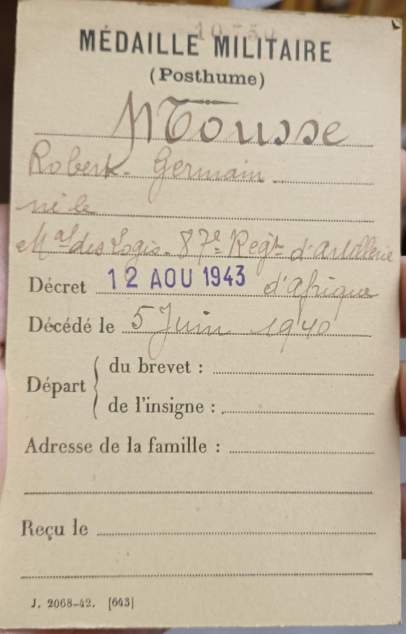 MÉDAILLE MILITAIRE
(Posthume)
Mousse
Robert. Germain
né le
Mal des Logis. 87e Regt d'Artillerie
Décret 12 AOU 1943 d'Afrique
Décédé le 5 Juin 1940
Départ
du brevet :
de l'insigne :
Adresse de la famille :
Reçu le
J. 2068-42. [643]